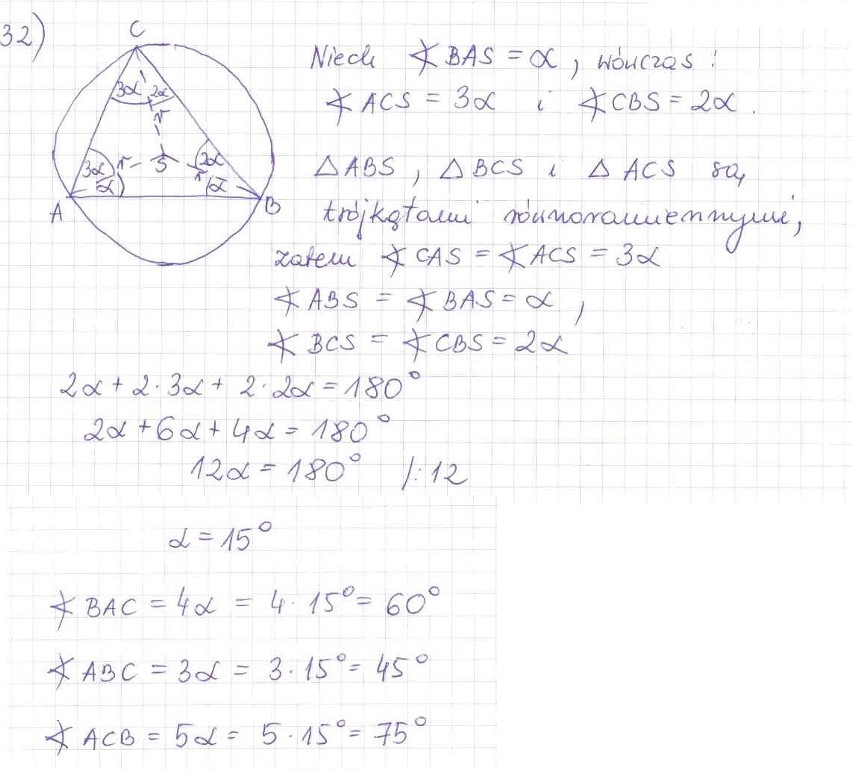 32)
C
3α 2α
r
3α r S 2α
α r α
A B
Niech ∢ BAS = α, wówczas:
∢ ACS = 3α i ∢ CBS = 2α.
△ ABS, △ BCS i △ ACS są
trójkątami równoramiennymi,
zatem ∢ CAS = ∢ ACS = 3α
∢ ABS = ∢ BAS = α,
∢ BCS = ∢ CBS = 2α
2α + 2·3α + 2·2α = 180°
2α + 6α + 4α = 180°
12α = 180° /:12
α = 15°
∢ BAC = 4α = 4·15° = 60°
∢ ABC = 3α = 3·15° = 45°
∢ ACB = 5α = 5·15° = 75°